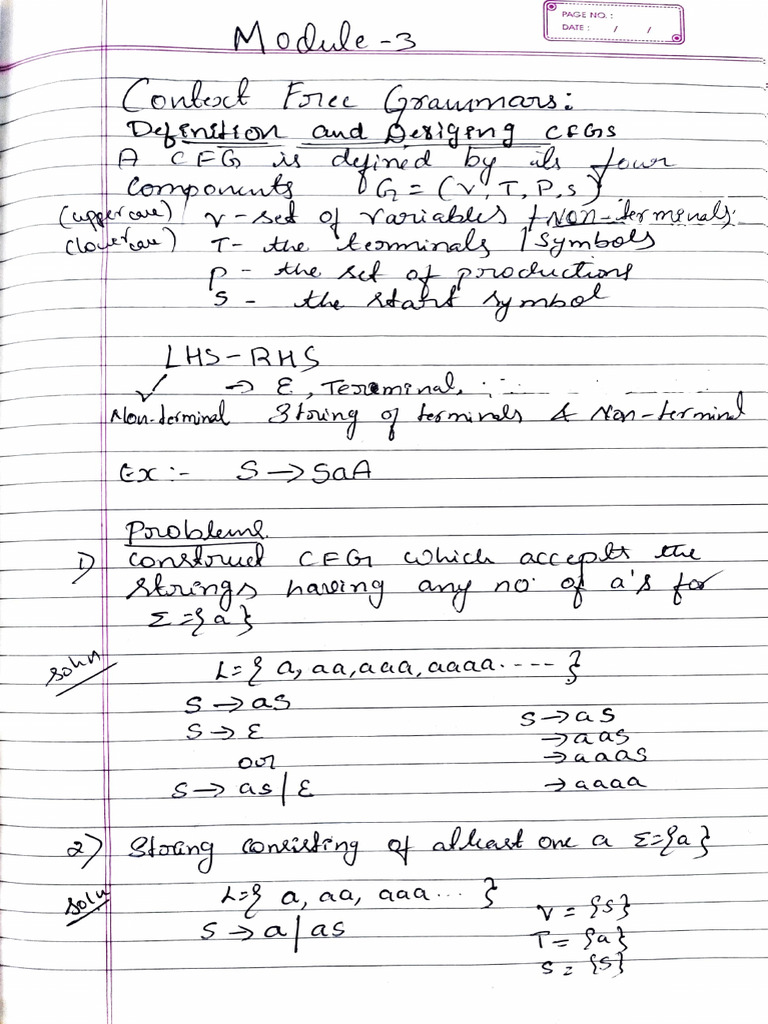 PAGE NO. :
DATE : / /
Module -3
Context Free Grammars:
Definition and Desiging CFGs
A CFG is defined by its four
components G = (V, T, P, S)
(uppercase) V - set of variables / Non-terminals.
(lowercase) T - the terminals / symbols
P - the set of productions
S - the start symbol
LHS - RHS
→ ε, Terminal,
Non-terminal String of terminals & Non-terminal
Ex :- S → SaA
Problems.
1) construct CFG which accepts the
strings having any no. of a's for
Σ = {a}
soln
L = { a, aa, aaa, aaaa. ---- }
S → aS
S → ε
or
S → aS | ε
S → aS
→ aaS
→ aaaS
→ aaaa
2) String consisting of atleast one a Σ={a}
soln
L={ a, aa, aaa... }
S → a | aS
V = {S}
T = {a}
S = {S}